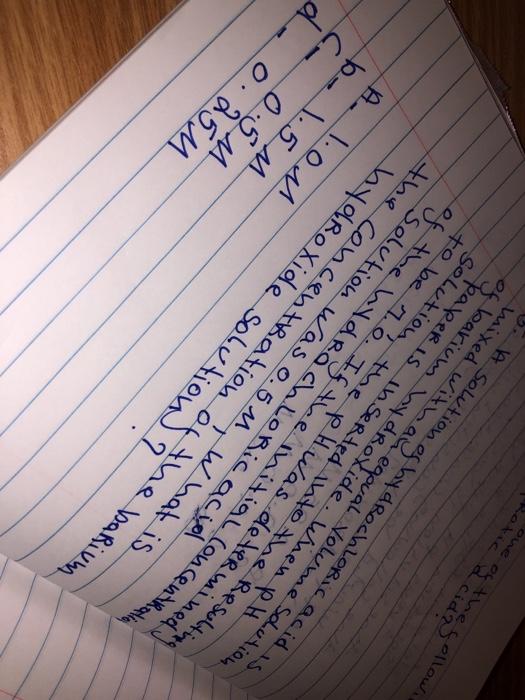 one of the
acid?
A solution of hydrochloric acid is
mixed with an equal volume solution
of barium hydroxide. When pH
paper is inserted into the resulting
solution, the pH was determined
to be 7.0. If the initial concentration
of the hydrochloric acid
solution was 0.5M, what is
the concentration of the barium
hydroxide solution?
A. 1.0M
b. 1.5M
c. 0.5M
d. 0.25M